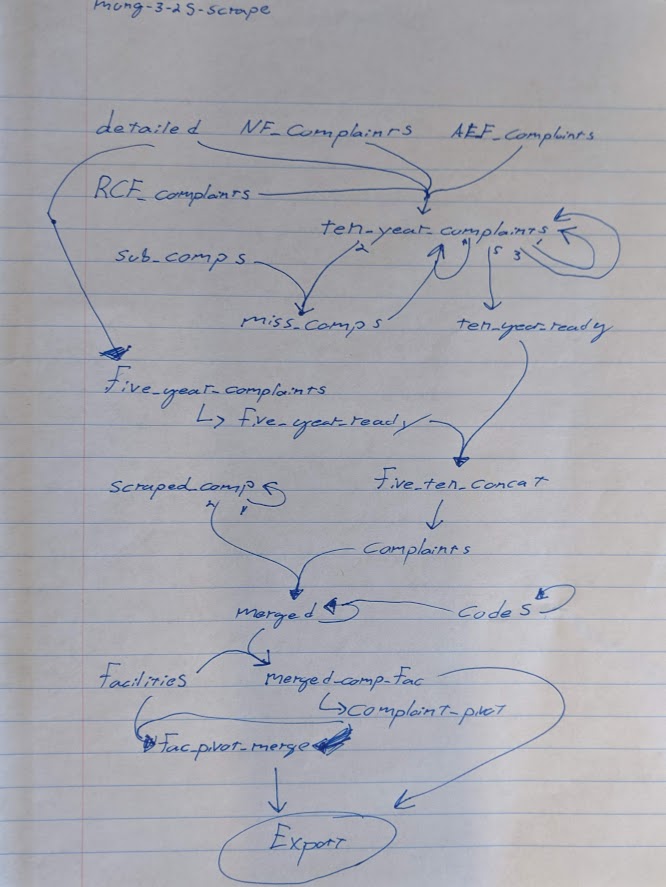 mung-3-25-scrape
detailed NF_Complaints AEF_Complaints
RCF_complaints
ten_year_complaints
2 4 5 3 1
sub_comps
miss_comps ten_year_ready
Five_year_complaints
Five_year_ready
scraped_comp Five_ten_concat
2 1
Complaints
merged codes
Facilities merged_comp_fac
Complaint_pivot
Fac_pivot_merge
Export